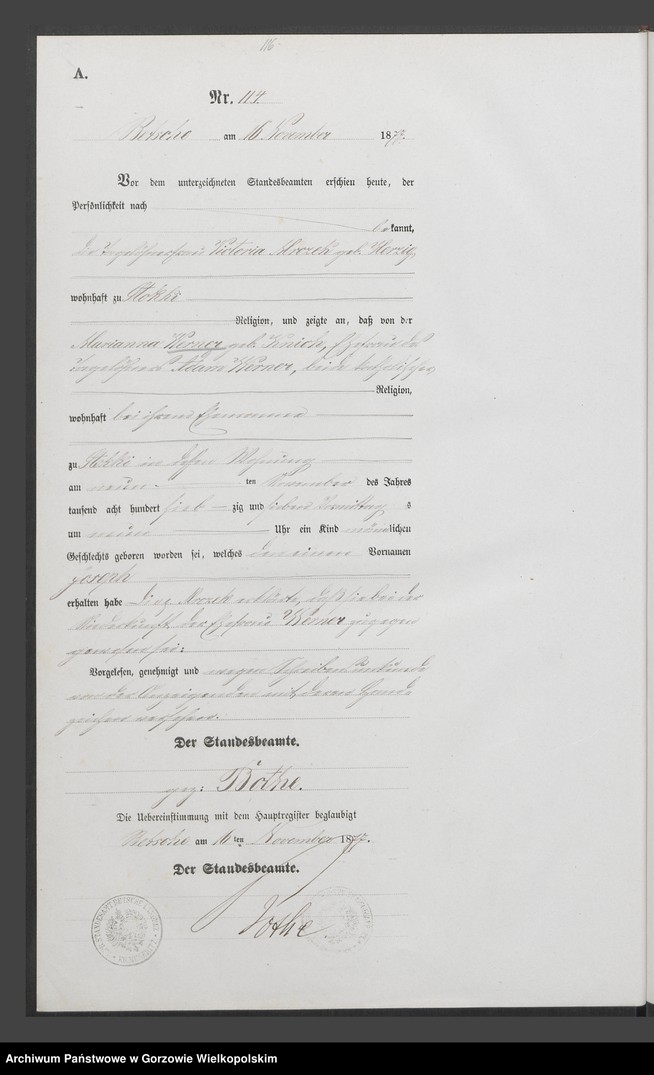 116
A.
Nr. 114.
Betsche am 16 November 1877.
Vor dem unterzeichneten Standesbeamten erschien heute, der
Persönlichkeit nach
bekannt,
die Tagelöhnerfrau Victoria Mrozek geb. Herzig,
wohnhaft zu Stokki
Religion, und zeigte an, daß von der
Marianna Werner geb. Knich, Ehefrau des
Tagelöhners Adam Werner, beide katholischer
Religion,
wohnhaft bei ihrem Ehemanne
zu Stokki in dessen Wohnung
am neun ten November des Jahres
tausend acht hundert sieb zig und sieben Vormittag s
um neun Uhr ein Kind männlichen
Geschlechts geboren worden sei, welches den einen Vornamen
Joseph
erhalten habe Die p. Mrozek erklärte, daß sie bei der
Niederkunft der Ehefrau Werner zugegen
gewesen sei:
Vorgelesen, genehmigt und wegen Schreibensunkunde
von der Anzeigenden mit deren Hand
zeichen versehen.
Der Standesbeamte.
gez: Bothe.
Die Uebereinstimmung mit dem Hauptregister beglaubigt
Betsche am 16 ten November 1877.
Der Standesbeamte.
Bothe
Archiwum Państwowe w Gorzowie Wielkopolskim